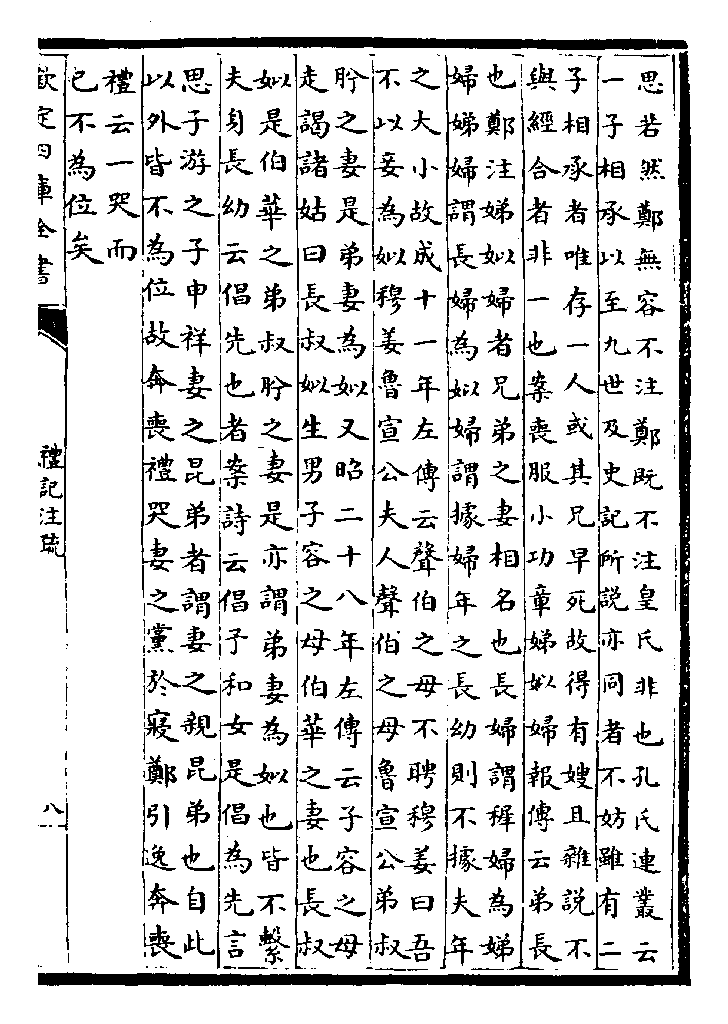 思若然鄭無容不注鄭既不注皇氏非也孔氏連叢云
一子相承以至九世及史記所說亦同者不妨雖有二
子相承者唯存一人或其兄早死故得有嫂且雜說不
與經合者非一也案喪服小功章娣姒婦報傳云弟長
也鄭注娣姒婦者兄弟之妻相名也長婦謂穉婦為娣
婦娣婦謂長婦為姒婦謂據婦年之長幼則不據夫年
之大小故成十一年左傳云聲伯之母不聘穆姜曰吾
不以妾為姒穆姜魯宣公夫人聲伯之母魯宣公弟叔
肸之妻是弟妻為姒又昭二十八年左傳云子容之母
走謁諸姑曰長叔姒生男子容之母伯華之妻也長叔
姒是伯華之弟叔肸之妻是亦謂弟妻為姒也皆不繫
夫身長幼云倡先也者案詩云倡予和女是倡為先言
思子游之子申祥妻之昆弟者謂妻之親昆弟也自此
以外皆不為位故奔喪禮哭妻之黨於寢鄭引逸奔喪
禮云一哭而
已不為位矣
欽定四庫全書
禮記注疏
八